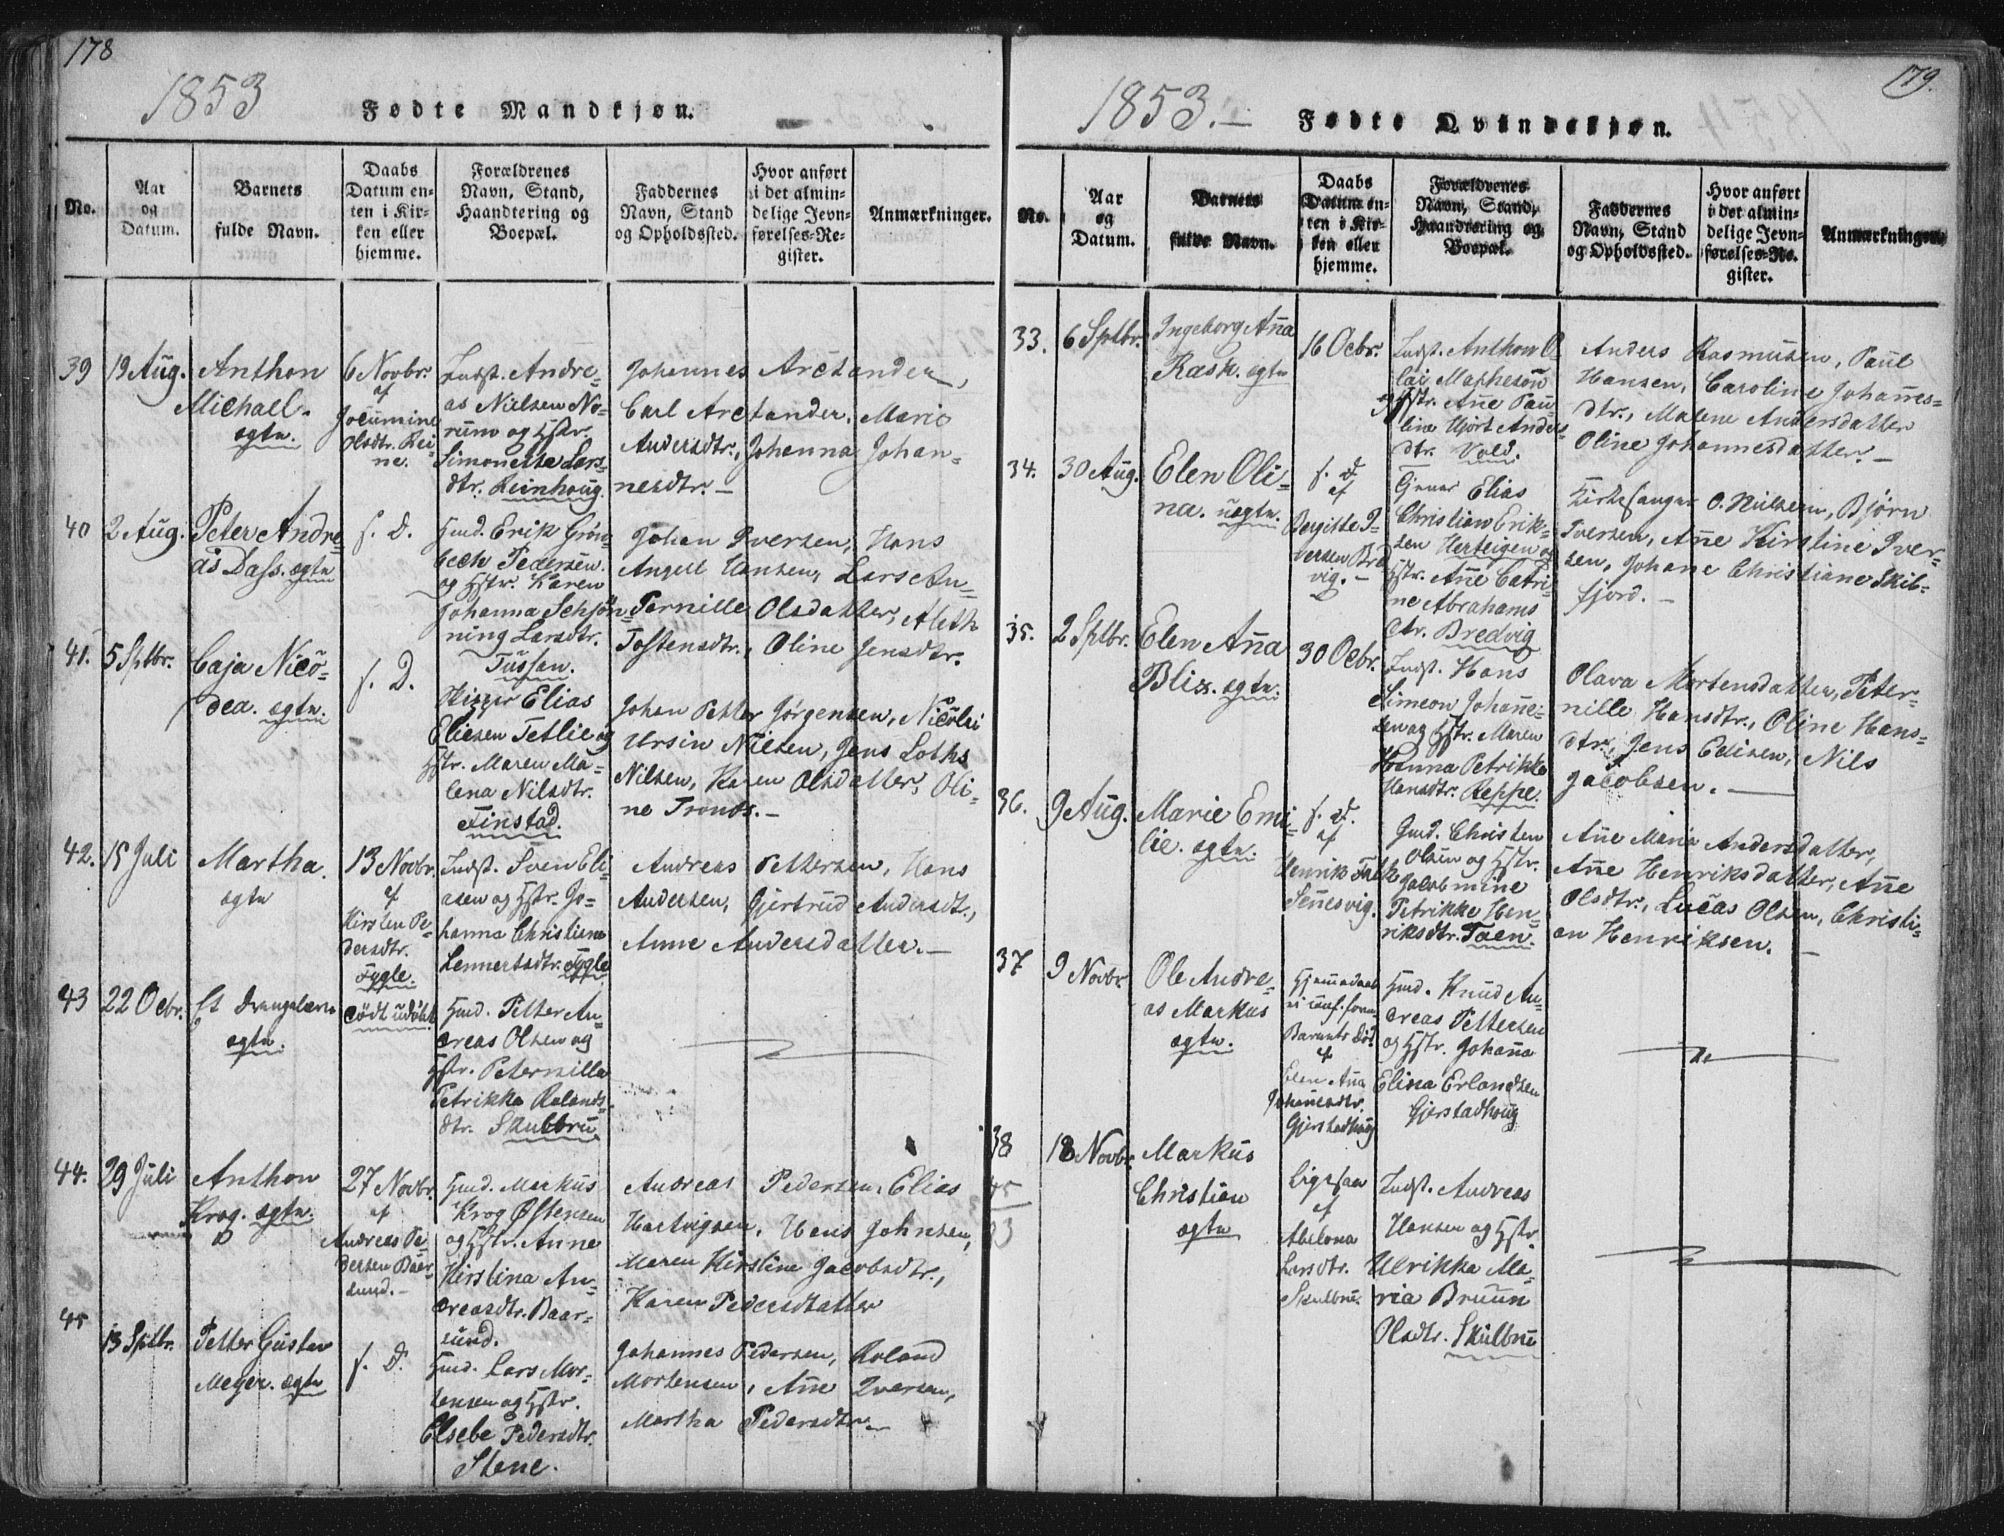 178
1853
Fødte Mandkjøn.
No.
Aar
og
Datum.
Barnets
fulde Navn.
Daabs
Datum en-
ten i Kir-
ken eller
hjemme.
Forældrenes
Navn, Stand,
Haandtering og
Boepæl.
Faddernes
Navn, Stand
og Opholdssted.
Hvor anført
i det almin-
delige Jevn-
førelses-Re-
gister.
Anmærkninger.
39
19 Aug.
Anthon
Michael.
ægte.
6 Novbr.
af
Jocumine
Olsdtr. Rei-
ne.
Indst. Andre-
as Nielsen No-
rum og Hstr.
Simonette Lars-
dtr. Reinhoug.
Johannes Arctander,
Carl Arctander, Marie
Andersdtr., Johanna Johan-
nesdtr. —
40
2 Aug.
Peter Andre-
as Dass. ægte
s. D.
Gmd. Erik Grön-
bech Pedersen
og Hstr. Karen
Johanna Schjön-
ning Larsdtr.
Tussen.
Johan Iversen, Hans
Angell Hansen, Lars An-
Pernille Olsdatter, Aleth
Tostensdtr., Oline Jensdtr.
41.
5 Sptbr.
Caja Nico-
dea. ægte.
s. D.
Elias
Eliesen Tetlie og
Hstr. Maren Ma-
lena Nilsdtr.
Finstad.
Johan Petter Jörgensen, Nicolai
Ursin Nielsen, Jens Loths
Nilsen, Karen Olsdatter, Oli-
ne Tronds. —
42.
15 Juli
Martha.
ægte
13 Novbr.
af
Kirsten Pe-
dersdtr.
Fygle.
Indst. Sven Eli-
asen og Hstr. Jo-
hanna Christiane
Lennertsdtr. Fygle
Andreas Pettersen, Hans
Andersen, Gjertrud Andersdt.,
Anne Andersdatter. —
43
22 Ocbr.
Et Drengebarn
ægte.
Gmd. Petter An-
dreas Olsen og
Hstr. Peternille
Petrikka Rolands-
dtr. Skulbru
44.
29 Juli
Anthon
Krog. ægte.
27 Novbr.
af
Andreas Pe-
dersen Baar-
sund. —
Gmd. Markus
Krog Østensen
og Hstr. Anne
Kirstina An-
dreasdtr. Baar-
sund.
Andreas Pedersen, Elias
Hartvigsen, Hans Johnsen,
Maren Kirstine Jacobsdtr.,
Karen Pedersdatter
45
13 Sptbr.
Petter Gustav
Meyer. ægte
s. D.
Gmd. Lars Mor-
tensen og Hstr.
Elsebe Pedersdtr.
Stene.
Johannes Pedersen, Roland
Mortensen, Ane Iversen,
Martha Pedersdtr.
179.
1853. —
Fødte Qvindekjøn.
No.
Aar
og
Datum.
Barnets
fulde Navn.
Daabs
Datum en-
ten i Kir-
ken eller
hjemme.
Forældrenes
Navn, Stand,
Haandtering og
Boepæl.
Faddernes
Navn, Stand
og Opholdssted.
Hvor anført
i det almin-
delige Jevn-
førelses-Re-
gister.
Anmærkninger.
33.
6 Sptbr.
Ingeborg Ana
Rask. ægte
16 Ocbr.
Indst. Anthon O
lai Matheson
og Hstr. Ane Pau-
line Hjort Anders-
dtr. Vold.
Anders Rasmusen, Paul
Hansen, Caroline Johanes-
dtr., Malene Andersdatter
Oline Johannesdatter. —
34.
30 Aug.
Elen Oli-
na. uægte.
s. D.
af
Bergitte I-
versen Bred-
vig. —
Tjener Elias
Christian Erik-
sen Herteigen og
Hstr. Ane Catri-
ne Abrahams
dtr. Bredvig
Kirkesanger O. Nielsen, Björn
Iversen, Ane Kirstine Iver-
sen, Johane Christiane Skib-
fjord. —
35.
2 Sptbr.
Elen Ana
Blix. ægte.
30 Ocbr.
Indst. Hans
Simeon Johane-
sen og Hstr. Maren
Hanna Petrikke
Hansdtr. Reppe.
Olava Mortensdatter, Peter-
nille Hansdtr., Oline Hans-
dtr., Jens Edisen, Nils
Jacobsen. —
36.
9 Aug.
Marie Emi-
lie. ægte.
s. D.
af
Henrik Falk
Senesvig.
Gmd. Christen
Olsen og Hstr.
Jacobmine
Petrikke Hen-
riksdtr. Toen.
Ane Maria Andersdatter,
Ane Henriksdatter, Ane
Olsdtr., Lucas Olsen, Christi-
an Henriksen. —
37
9 Novbr.
Ole Andre-
as Markus
ægte.
Barnets Död
af
Elen Ana
Johanesdtr.
Gjerstadhoug
Gmd. Knud An-
dreas Pettersen
og Hstr. Johana
Elina Erlandsen
Gjerstadhoug
38
18 Novbr.
Markus
Christian
ægte
af
Abelona
Larsdtr.
Skulbru.
Indst. Andreas
Hansen og Hstr.
Ulrikka Ma-
ria Bruun
Olsdtr. Skulbru
45